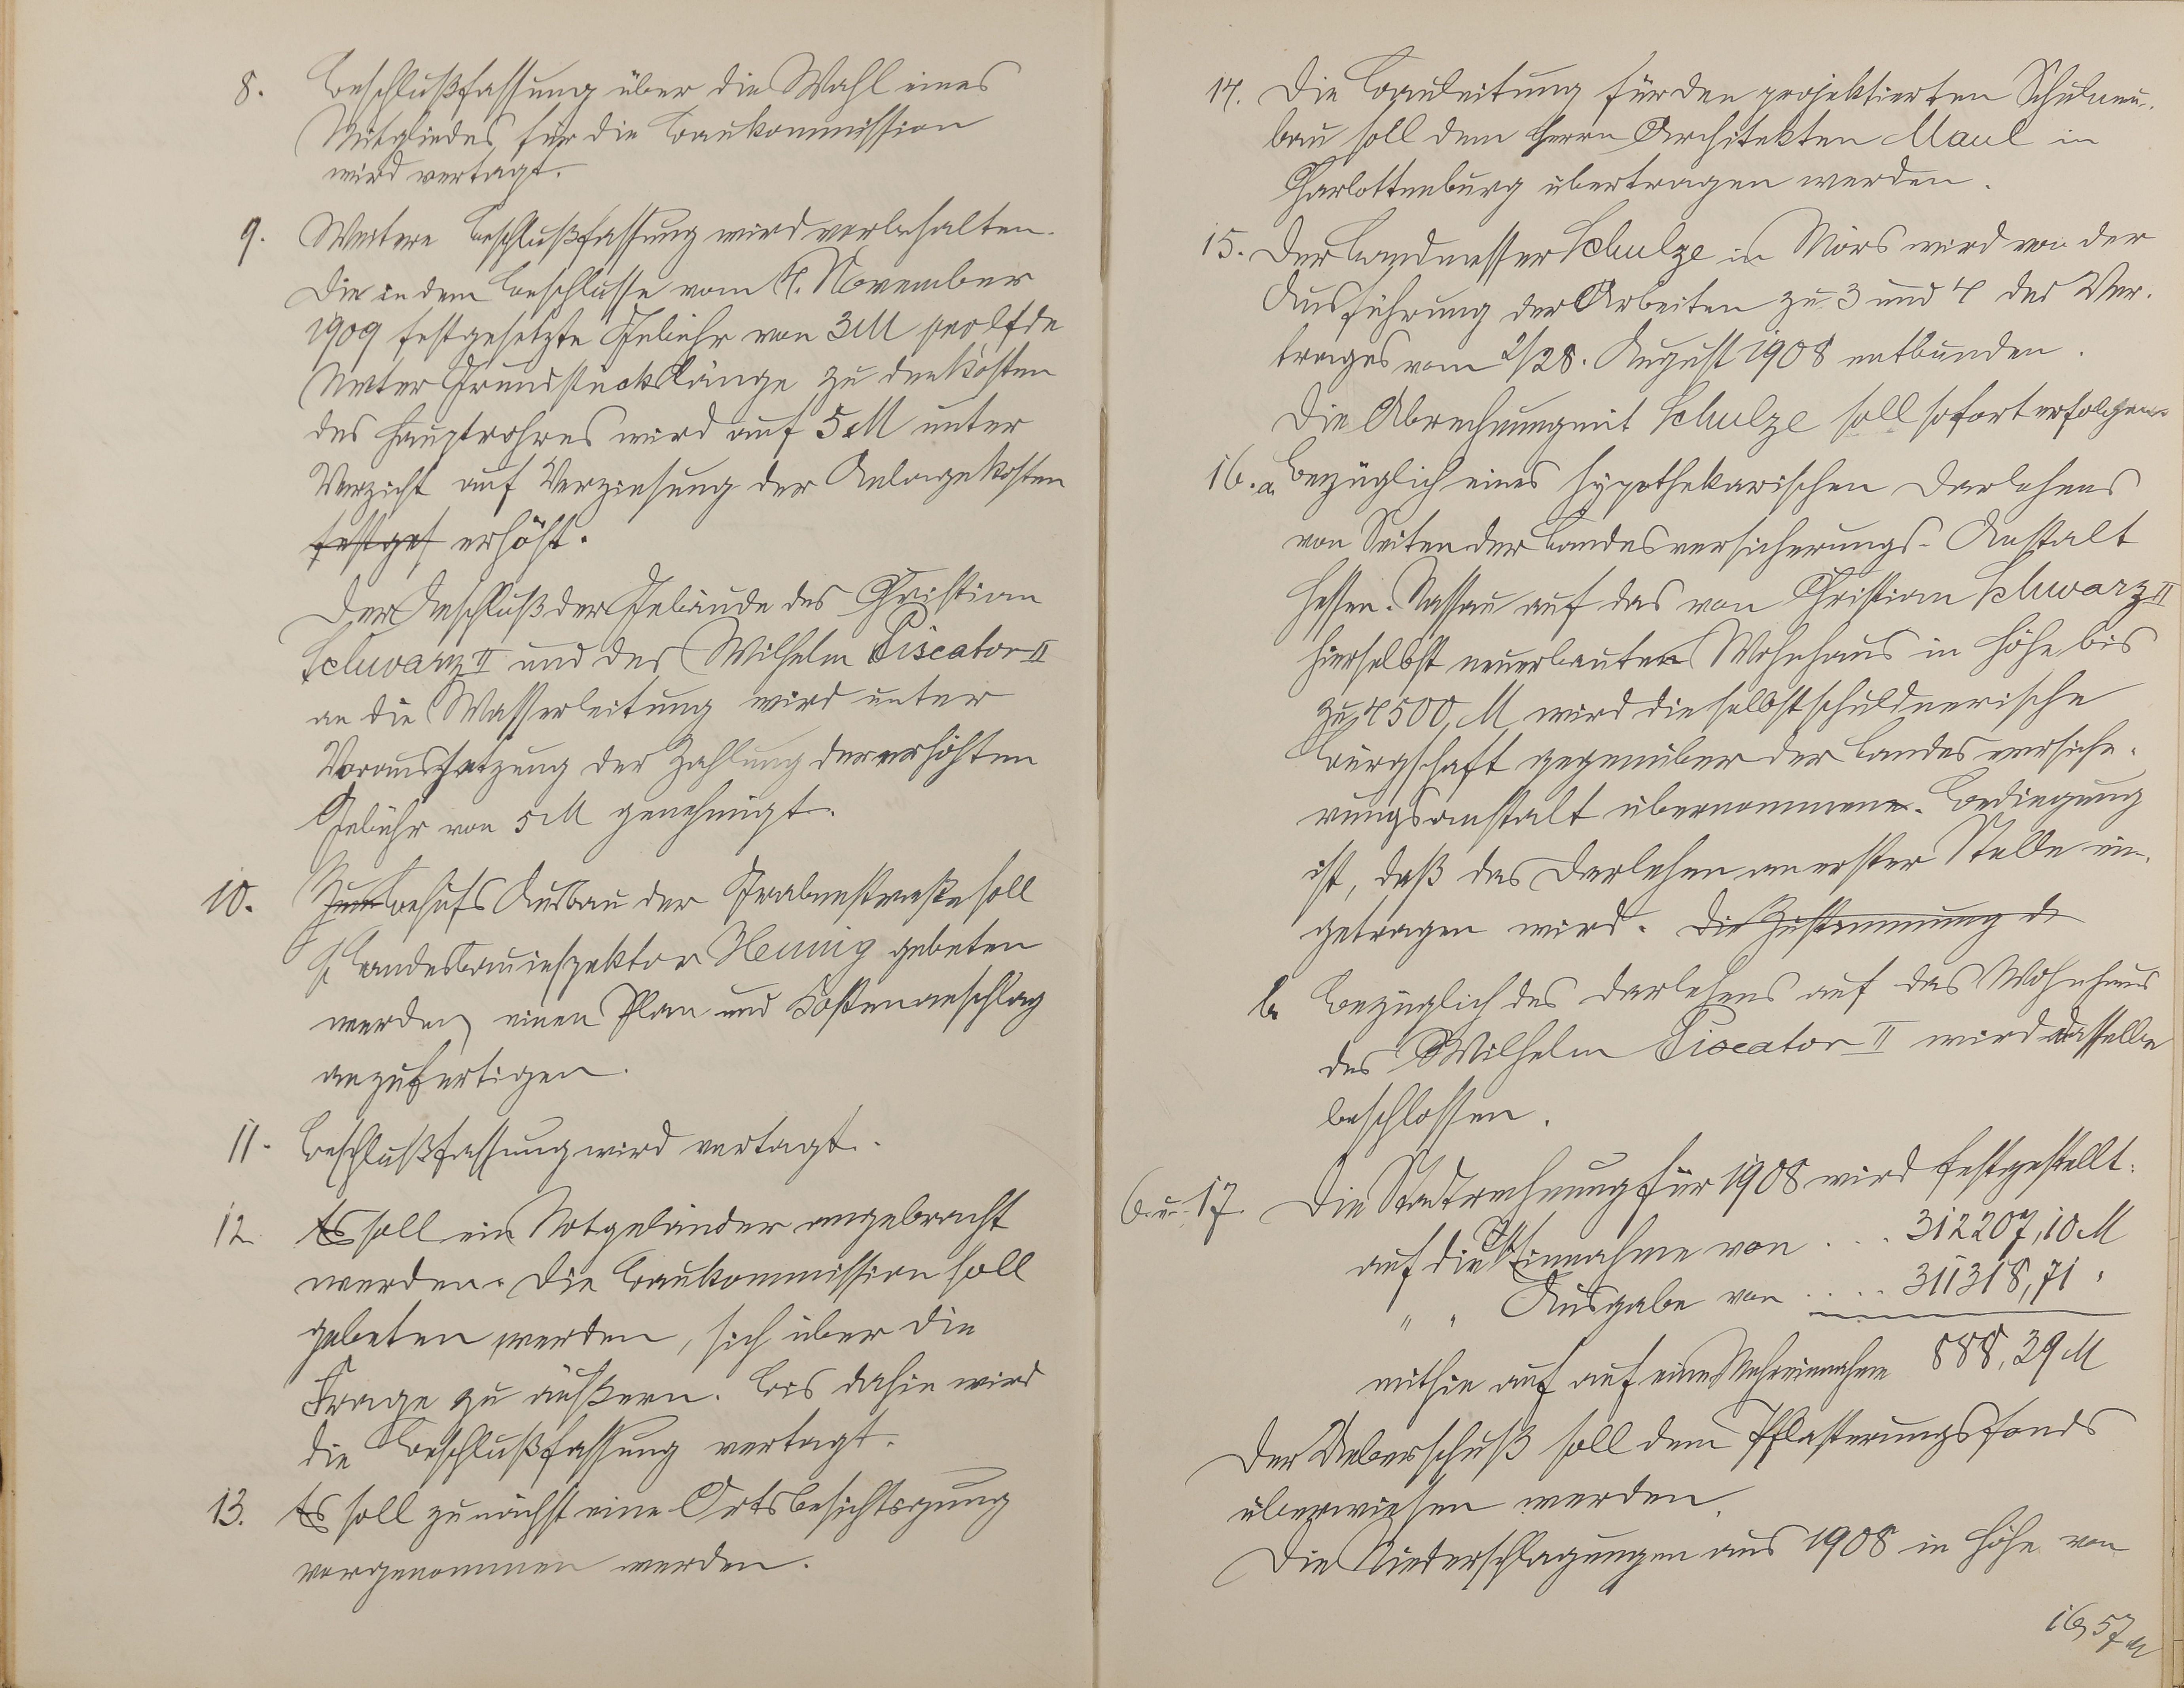 8. Beschlußfassung über die Wahl eines
Mitgliedes für die Baukommission
wird vertagt.
9. Weitere Beschlußfassung wird vorbehalten.
Die in dem Beschlusse vom 4. November
1909 festgesetzte Gebühr von 3 M pro lfde
Meter Grundstückslänge zu den Kosten
des Hauptrohres wird auf 5 M unter
Verzicht auf Verzinsung der Anlagekosten
festges erhöht.
Der Anschluß der Gebäude des Christian
Schwarz II und des Wilhelm Piscator II
an die Wasserleitung wird unter
Voraussetzung der Zahlung der erhöhten
Gebühr von 5 M genehmigt.
10. Zum Behufs Ausbau der Grabenstraße soll
H. Landesbauinspektor Hennig gebeten
werden, einen Plan und Kostenanschlag
anzufertigen.
11. Beschlußfassung wird vertagt.
12. Es soll ein Notgeländer angebracht
werden. Die Baukommission soll
gebeten werden, sich über die
Frage zu äußern. Bis dahin wird
die Beschlußfassung vertagt.
13. Es soll zunächst eine Ortsbesichtigung
vorgenommen werden.
14. Die Bauleitung für den projektierten Schulneu-
bau soll dem Herrn Architekten Maul in
Charlottenburg übertragen werden.
15. Der Landmesser Schulze in Mörs wird von der
Ausführung der Arbeiten zu 3 und 4 des Ver-
trages vom 2/28. August 1908 entbunden.
Die Abrechnung mit Schulze soll sofort erfolgen.
16. a. Bezüglich eines hypothekarischen Darlehens
von Seiten der Landesversicherungs-Anstalt
Hessen-Nassau auf das von Christian Schwarz II
hierselbst neuerbauten Wohnhaus in Höhe bis
zu 4500, M wird die selbstschuldnerische
Bürgschaft gegenüber der Landesversiche-
rungsanstalt übernommen. Bedingung
ist, daß das Darlehen an erster Stelle ein-
getragen wird. Die Zustimmung d
b. Bezüglich des Darlehens auf das Wohnhaus
des Wilhelm Piscator II wird dasselbe
beschlossen.
6. u. 17. Die Stadtrechnung für 1908 wird festgestellt:
auf die Ist Einnahme von . . . 312207,10 M
" " Ausgabe von . . . . 311318,71 "
mithin auf auf eine Mehreinnahme 888,39 M
Der Ueberschuß soll dem Pflasterungsfonds
überwiesen werden.
Die Niederschlagungen aus 1908 in Höhe von
16,57 M